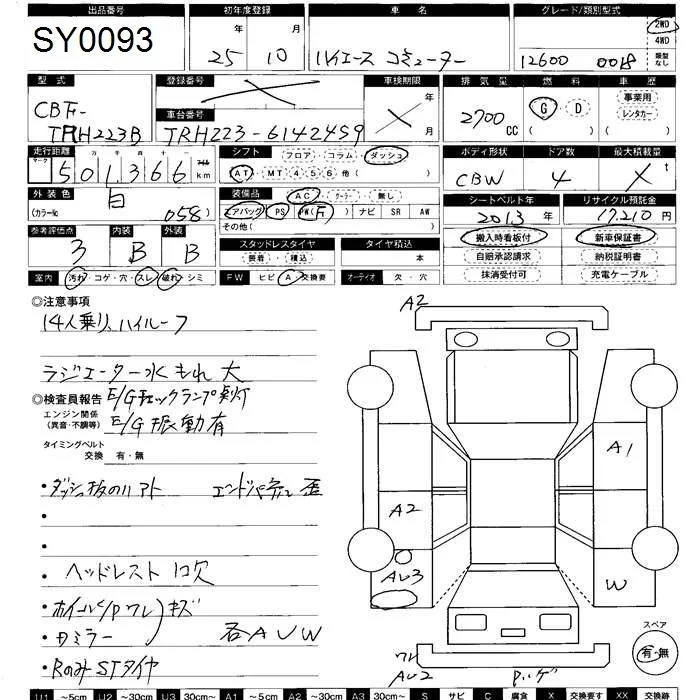 出品番号 初年度登録 車名 グレード/類別型式
SY0093 25年 10月 ハイエース コミューター 12600 0018 2WD 4WD 類型なし
型式 登録番号 車検期限 排気量 燃料 車歴
CBF-TRH223B 年 月 2700cc G D ( ) 事業用 レンタカー ( )
車台番号
TRH223-6142459
走行距離 シフト フロア・コラム・ダッシュ ボディ形状 ドア数 最大積載量
マーク 十万千百 501366 マイル km AT・MT 4 5 6 他( ) CBW 4 t
外装色 装備品 AC・クーラー・無し シートベルト年 リサイクル預託金
白 (カラーNo 058) エアバック PS PW(F) ナビ SR AW 2013年 17,210円
その他( )
参考評価点 内装 外装 スタッドレスタイヤ タイヤ積込 搬入時看板付 新車保証書
3 B B 装着・積込 本 自賠承認請求 納税証明書
室内 汚れ・コゲ・穴・スレ・破れ・シミ FW ヒビ・A・交換要 オーディオ 欠・穴 抹消受付可 充電ケーブル
◎注意事項
14人乗り、ハイルーフ
ラジエーター水もれ 大
◎検査員報告 E/Gチェックランプ点灯
エンジン関係(異音・不調等) E/G振動有
タイミングベルト
交換 有・無
・ダッシュ板の
・
・
・ヘッドレスト 欠
・ホイールC/P ワレ キズ
・ミラー 各AUW
・Rのみ STタイヤ
A2
A1
A2
AU3
W
スペア
有・無
ワレ
AU2
U1 ～5cm U2 ～30cm U3 30cm～ A1 ～5cm A2 ～30cm A3 30cm～ S サビ C 腐食 X 交換要す XX 交換跡